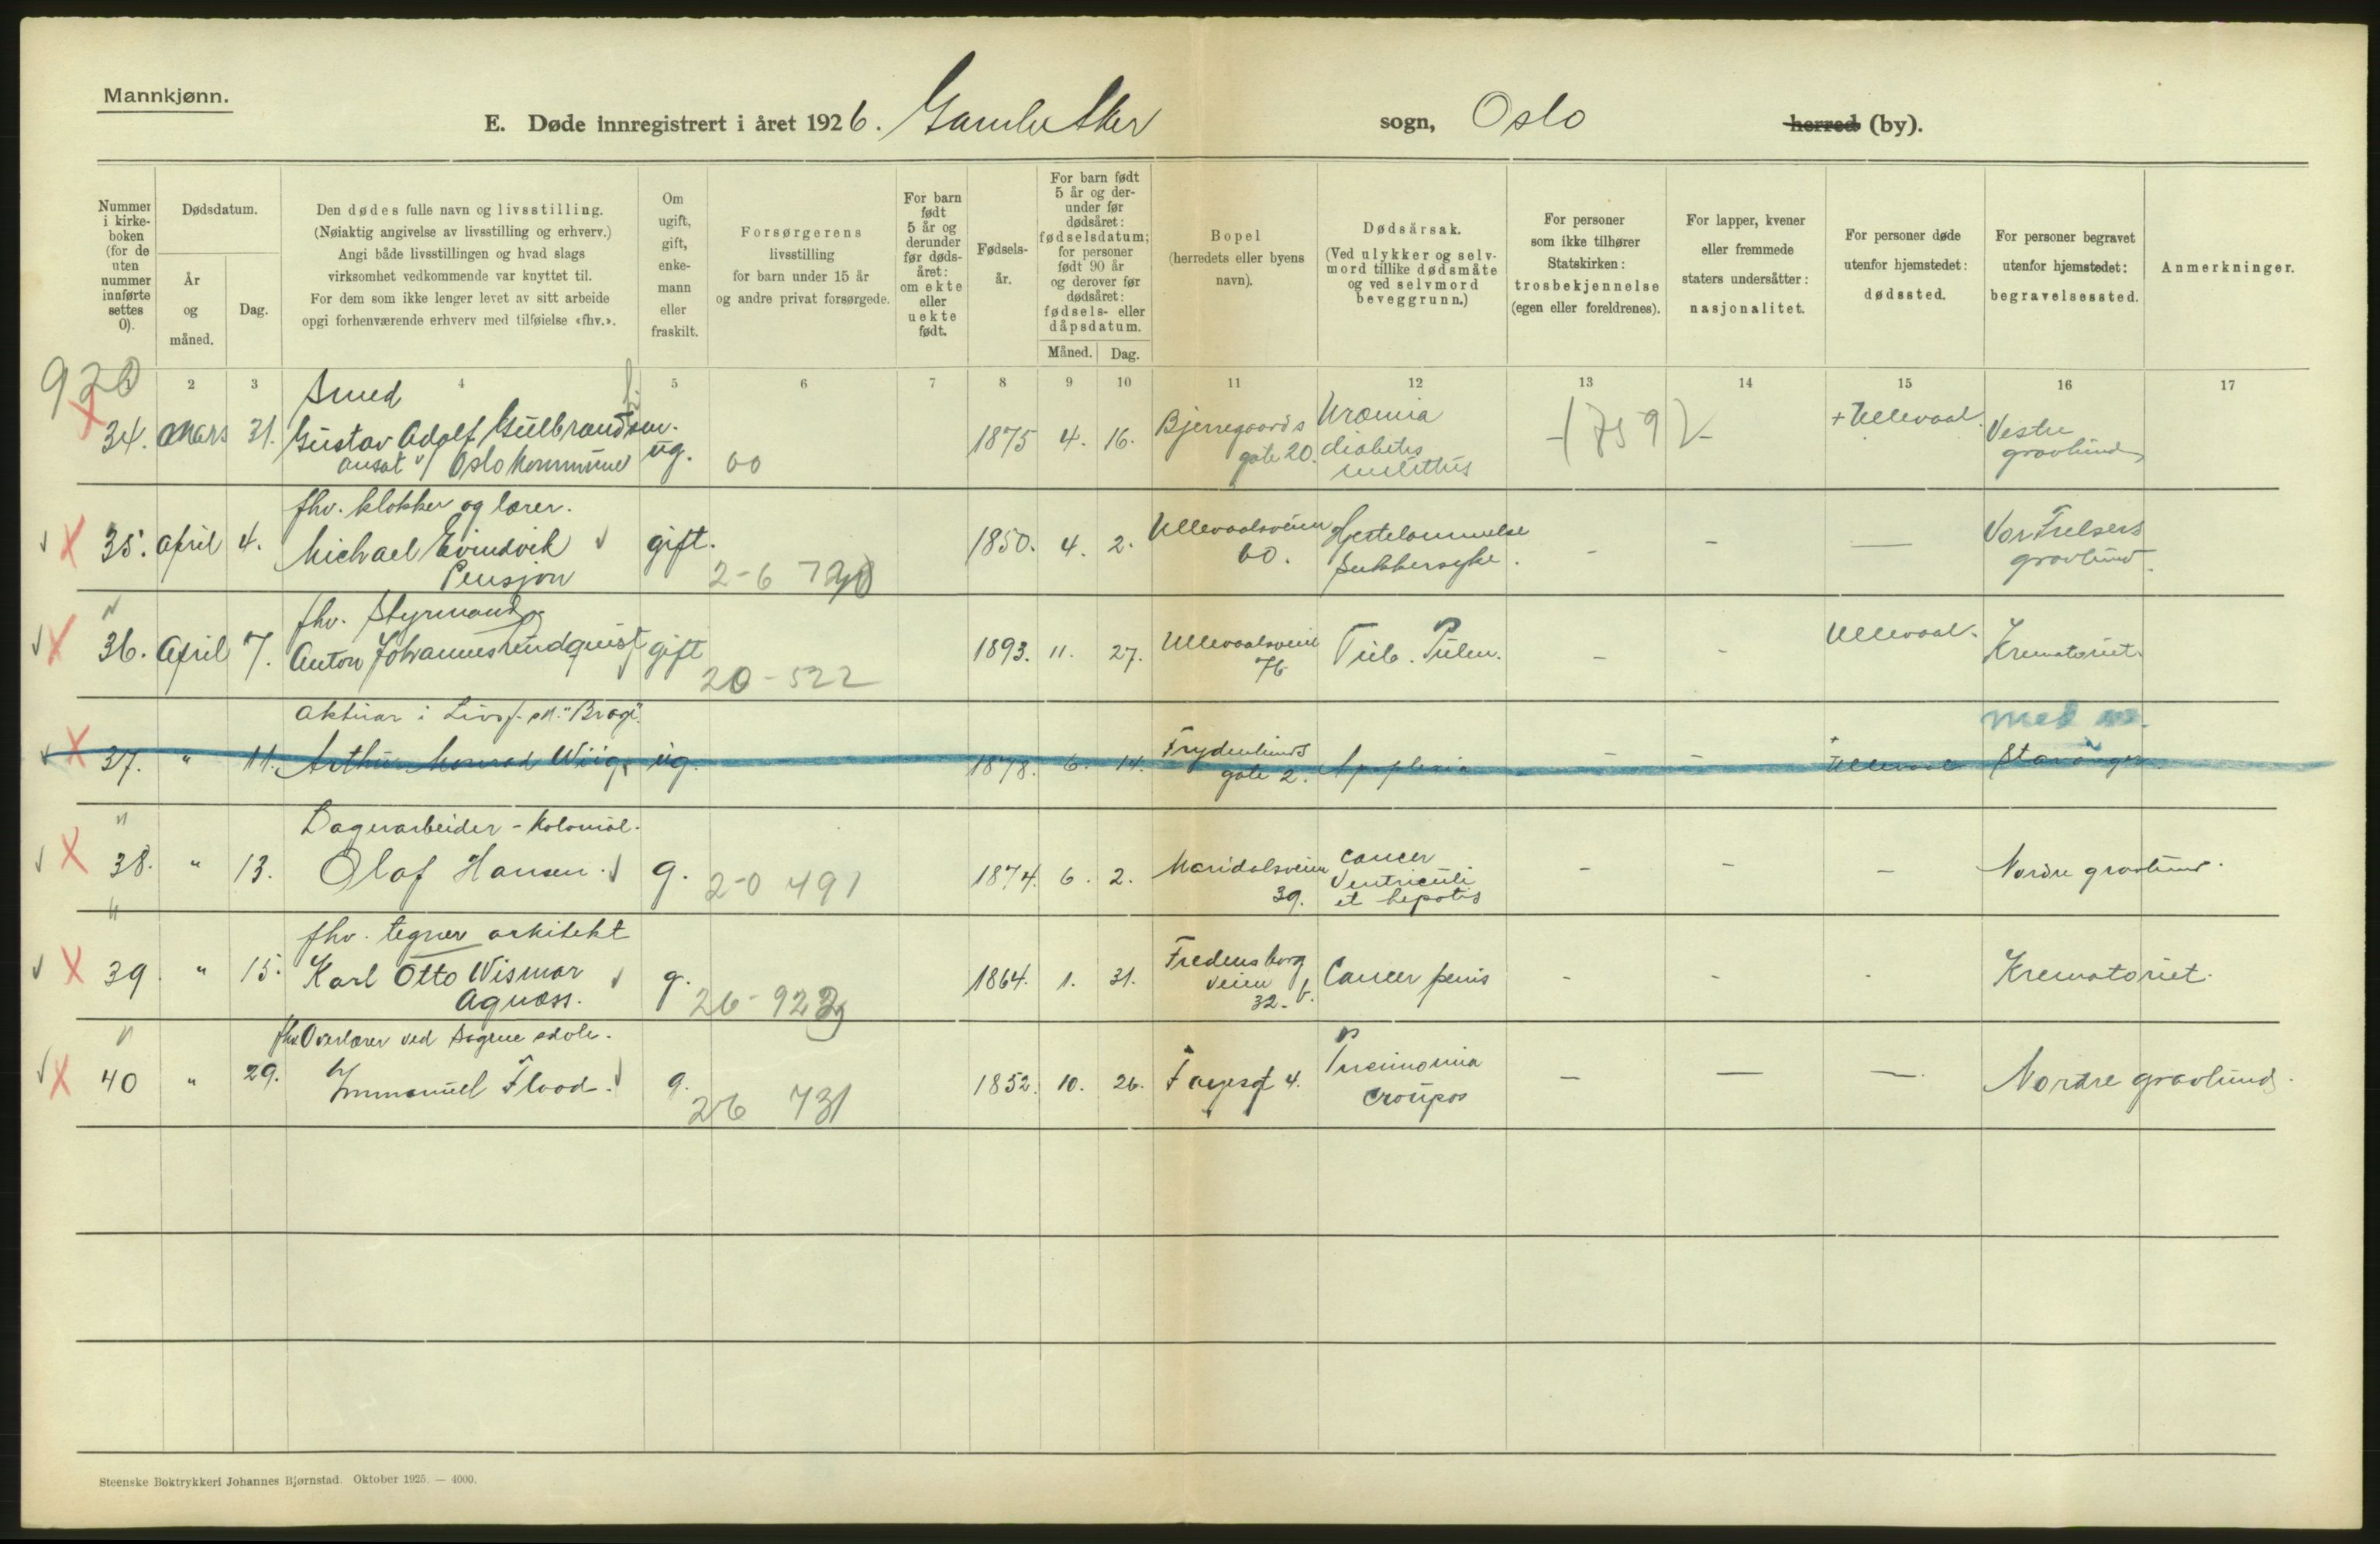 Mannkjønn.
E. Døde innregistrert i året 1926. Gamle Aker sogn, Oslo herred (by).
Nummer i kirkeboken (for de uten nummer innførte settes 0).
Dødsdatum.
År og måned.
Dag.
Den dødes fulle navn og livsstilling.
(Nøiaktig angivelse av livsstilling og erhverv.)
Angi både livsstillingen og hvad slags
virksomhet vedkommende var knyttet til.
For dem som ikke lenger levet av sitt arbeide
opgi forhenværende erhverv med tilføielse «fhv.».
Om ugift, gift, enkemann eller fraskilt.
Forsørgerens
livsstilling
for barn under 15 år
og andre privat forsørgede.
For barn født 5 år og derunder før dødsåret: om ekte eller uekte født.
Fødselsår.
For barn født 5 år og derunder før dødsåret: fødselsdatum; for personer født 90 år og derover før dødsåret: fødsels- eller dåpsdatum.
Måned. Dag.
Bopel
(herredets eller byens
navn).
Dødsårsak.
(Ved ulykker og selv-
mord tillike dødsmåte
og ved selvmord
beveggrunn.)
For personer
som ikke tilhører
Statskirken:
trosbekjennelse
(egen eller foreldrenes).
For lapper, kvener
eller fremmede
staters undersåtter:
nasjonalitet.
For personer døde
utenfor hjemstedet:
dødssted.
For personer begravet
utenfor hjemstedet:
begravelsessted.
Anmerkninger.
2 3 4 5 6 7 8 9 10 11 12 13 14 15 16 17
Smed
34. Mars 31. Gustav Adolf Gulbrandsen. ug. 1875 4. 16. Bjerregaards gate 20. Uræmia diabetes mellitus + Ullevaal. Vestre gravlund
ansat v/ Oslo kommune
fhv. klokker og lærer.
35. April 4. Michael Evindvik gift. 1850. 4. 2. Ullevaalsveien 60. Hjertelammelse sukkersyke. - - — Vor Frelsers gravlund.
Pensjon
2-6
fhv. Styrmand
36. April 7. Anton Johannes Lundquist gift 1893. 11. 27. Ullevaalsveien 76 Tub. Pulm. - - Ullevaal. Krematoriet.
20-522
Aktuar i Livsf. "Brage".
37. " 11. Arthur Monrad Wiig, ug. 1878. 6. 14. Frydenlunds gate 2. Apoplexia - - + Ullevaal Stavanger.
Lagerarbeider - kolonial.
38. " 13. Olaf Hansen. g. 1874. 6. 2. Maridalsveien 39. Cancer Ventriculi et hepatis - - - Nordre gravlund.
2-0 491
fhv. tegner arkitekt
39. " 15. Karl Otto Wismar Agnæss. g. 1864. 1. 31. Fredensborg veien 32. b. Cancer penis - - - Krematoriet.
fhv. Overlærer ved Sagene skole.
40 " 29. Immanuel Flood. g. 1852. 10. 26. Fayesgt 4. Pneumonia croupøs — — — Nordre gravlund.
26 731
Steenske Boktrykkeri Johannes Bjørnstad. Oktober 1925. — 4000.